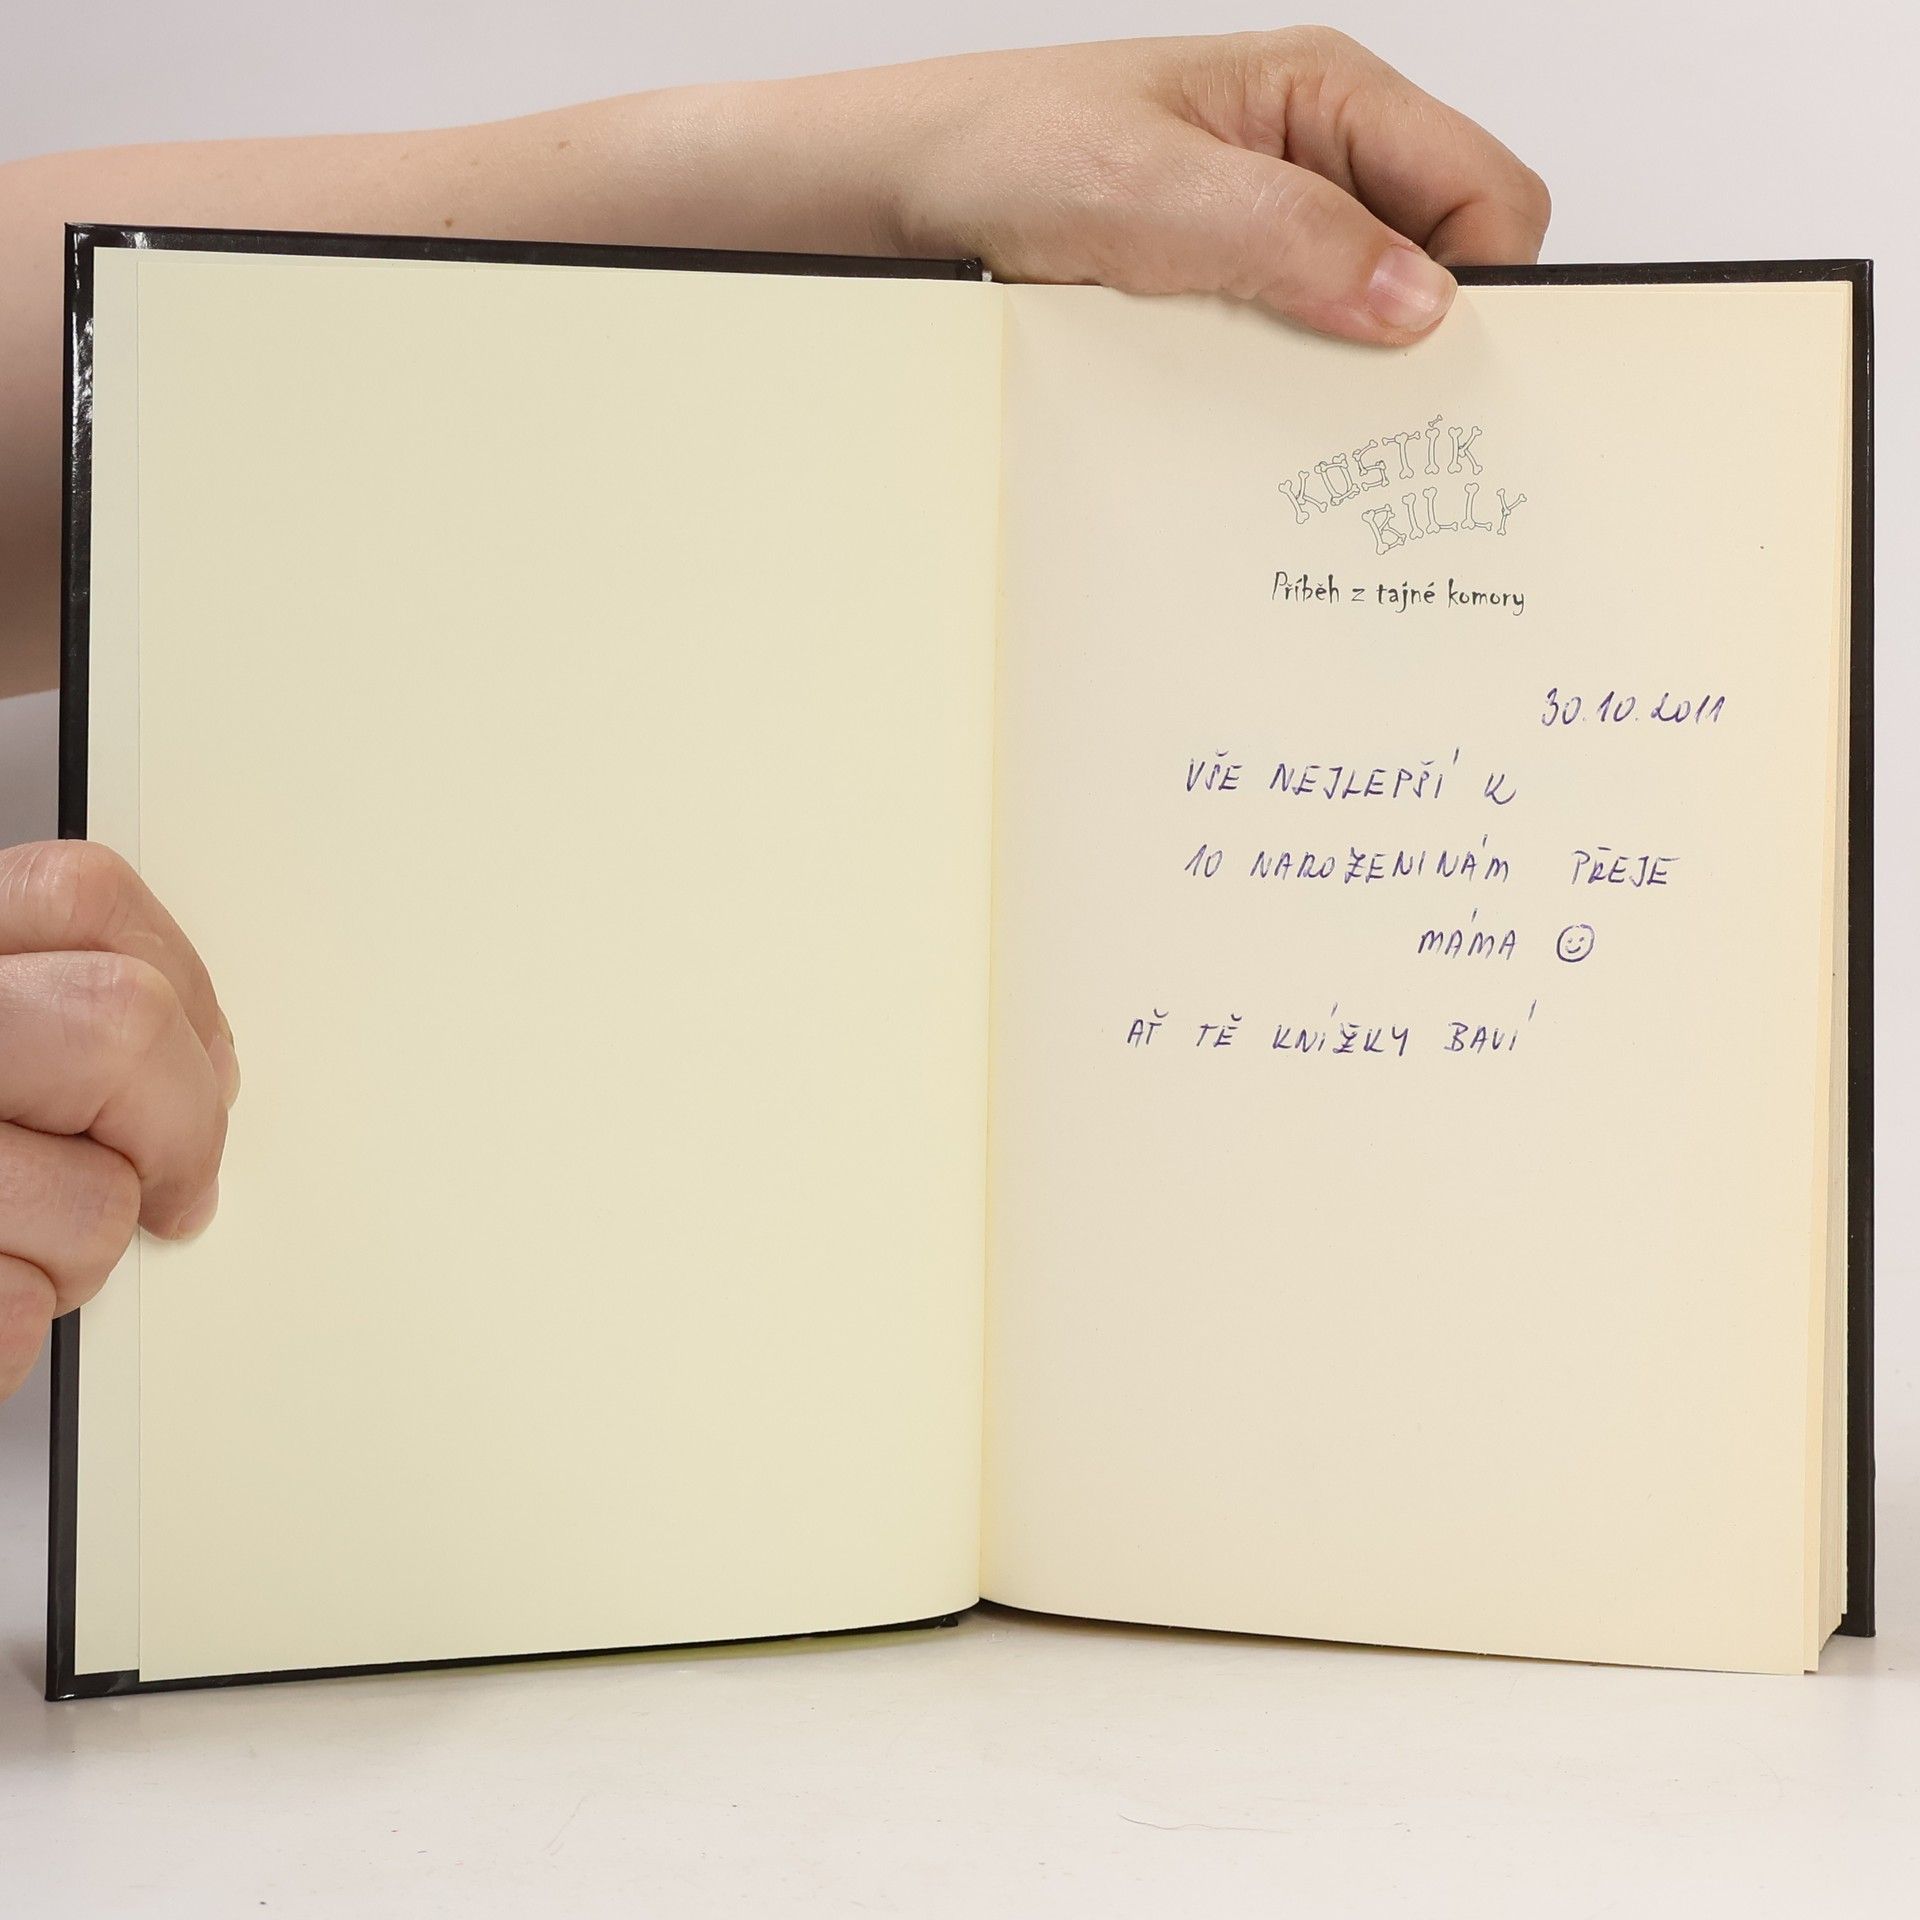 KOSTÍK
BILLY
Příběh z tajné komory
30.10.2011
VŠE NEJLEPŠÍ K
10 NAROZENINÁM PŘEJE
MÁMA ☺
AŤ TĚ KNÍŽKY BAVÍ